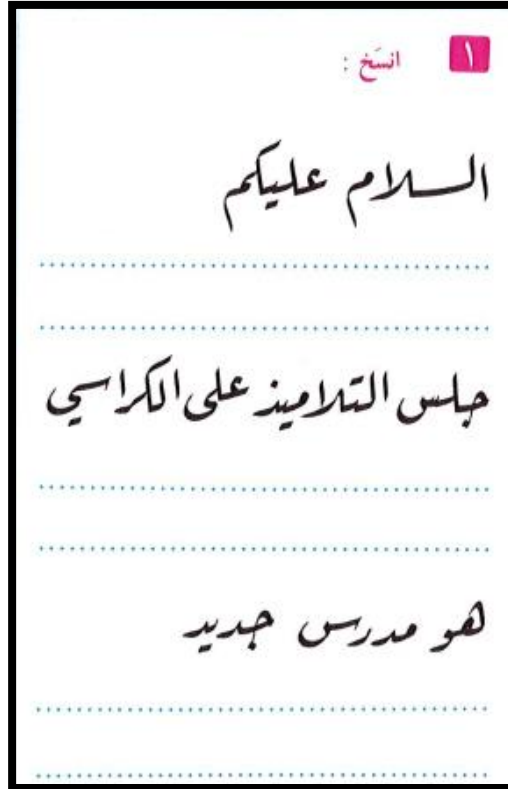 ١ انسَخ :
السلام عليكم
جلس التلاميذ على الكراسي
هو مدرس جديد